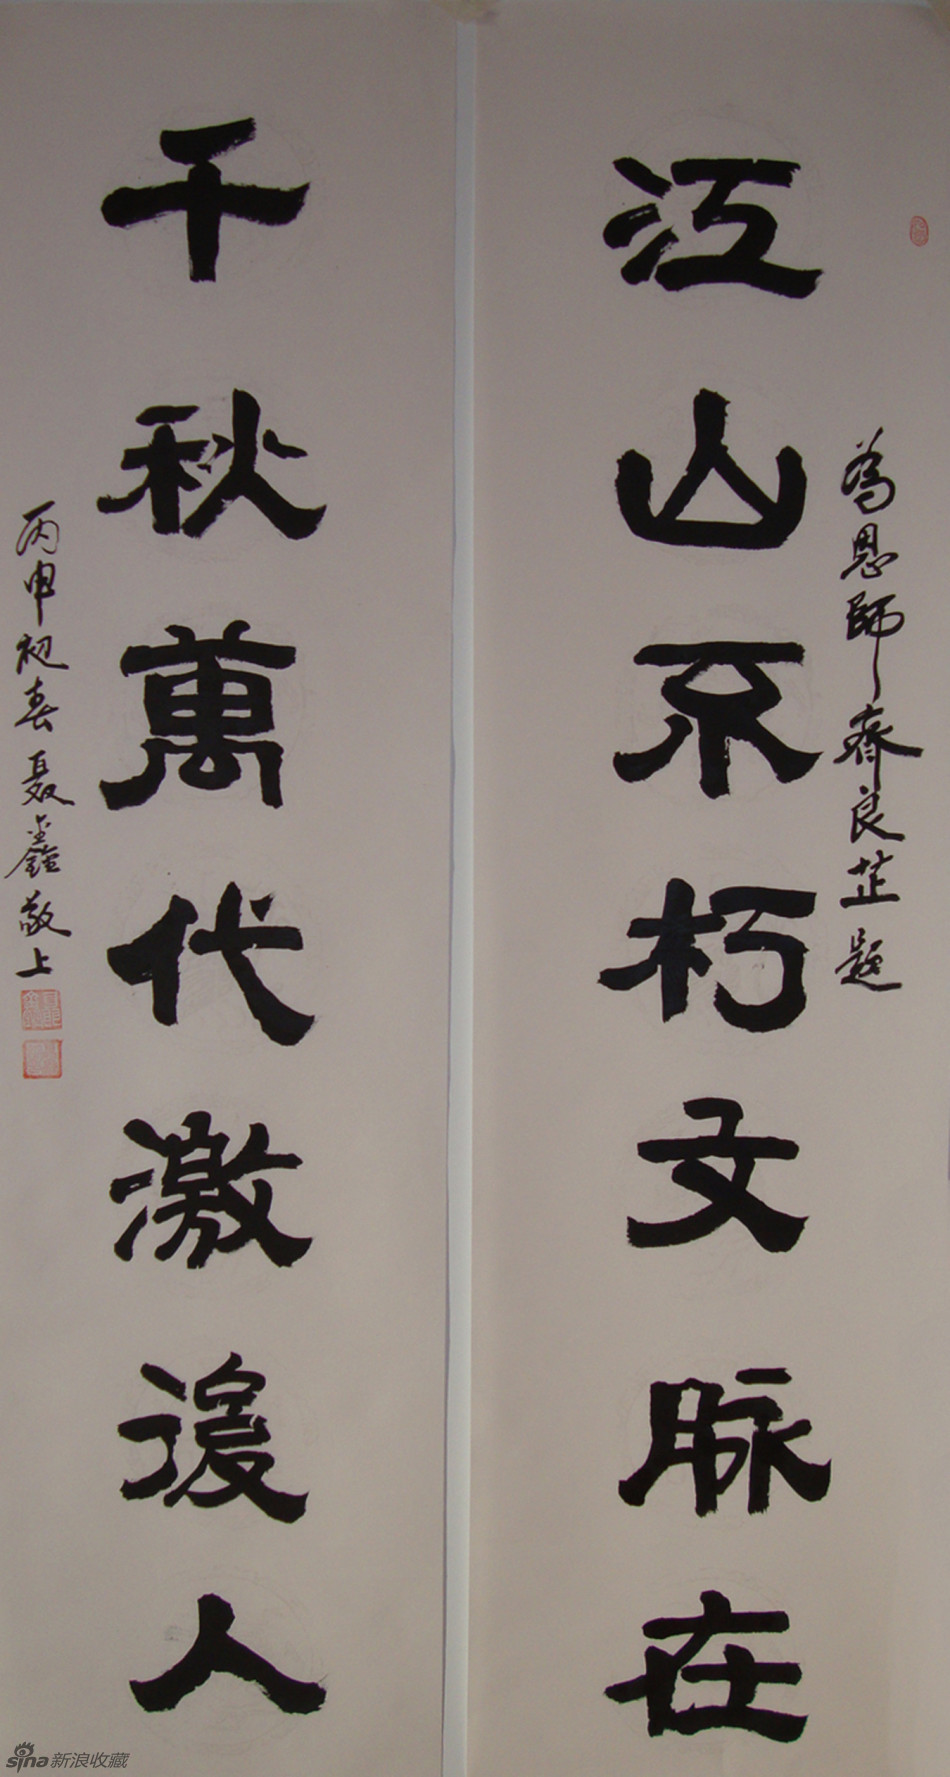 江山不朽文脉在
為恩師齊良芷題
千秋萬代激後人
丙申初春聂鑫敬上
sina新浪收藏